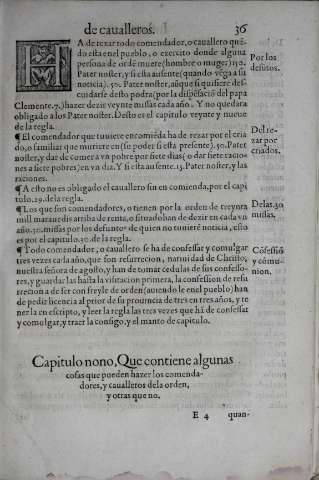 de caualleros. 36
HA de rezar todo comendador, o cauallero quãdo
esta enel pueblo, o exercito donde alguna
persona de ordẽ muere (hombre o muger) 150.
Pater noster, y si esta ausente (quando vẽga a su
noticia). 50. Pater noster, aũque si quisiere descuidarse
desto podra (por la dispẽsaciõ del papa
Clemente. 7.) hazer dezir veynte missas cada año. Y no quedara
obligado a los Pater noster. Desto es el capitulo veynte y nueue
de la regla.
Por los
defũtos.
¶ El comendador que tuuiere encomiẽda ha de rezar por el criado,
o familiar que muriere en (su poder si esta presente). 50. Pater
noster, y dar de comer a vn pobre por siete dias (o dar siete raciones
a siete pobres) en vn dia. Y si esta ausente. 15. Pater noster, y las
raciones.
Del rezar
por
criados.
¶ A esto no es obligado el cauallero sin encomienda, por el capitulo.
29. de la regla.
¶ Los que son comendadores, o tienen por la orden de treynta
mill marauedis arriba de renta, o situado han de dezir en cada vn
año. 30. missas por los defuntos de quien no tuuiere noticia, esto
es por el capitulo. 30. de la regla.
Delas. 30
missas.
¶ Todo comendador, o cauallero se ha de confessar y comulgar
tres vezes cada año, que son resurrecion, natiuidad de Christo,
nuestra señora de agosto, y han de tomar cedulas de sus confessores,
y guardar las hasta la visitacion primera, la confession de resurrecion
a de ser con freyle de orden (auiendo le enel pueblo) han
de pedir licencia al prior de su prouincia de tres en tres años, y tener
la en escripto, y leer la regla las tres vezes que hã de confessar
y comulgar, y traer la consigo, y el manto de capitulo.
Cõfessiõ
y comunion.
Capitulo nono, Que contiene algunas
cosas que pueden hazer los comendadores,
y caualleros dela orden,
y otras que no.
E 4 quan-